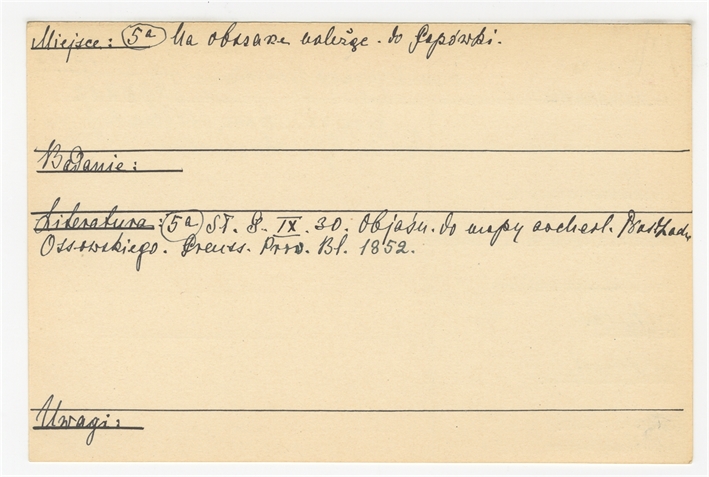 Miejsce: 5a Na obszarze należąc. do Papówki.
Badanie:
Literatura: 5a St. P. IX. 30. Objaśn. do mapy archeol.
Ossowskiego. Preuss. Prov. Bl. 1852.
Uwagi: